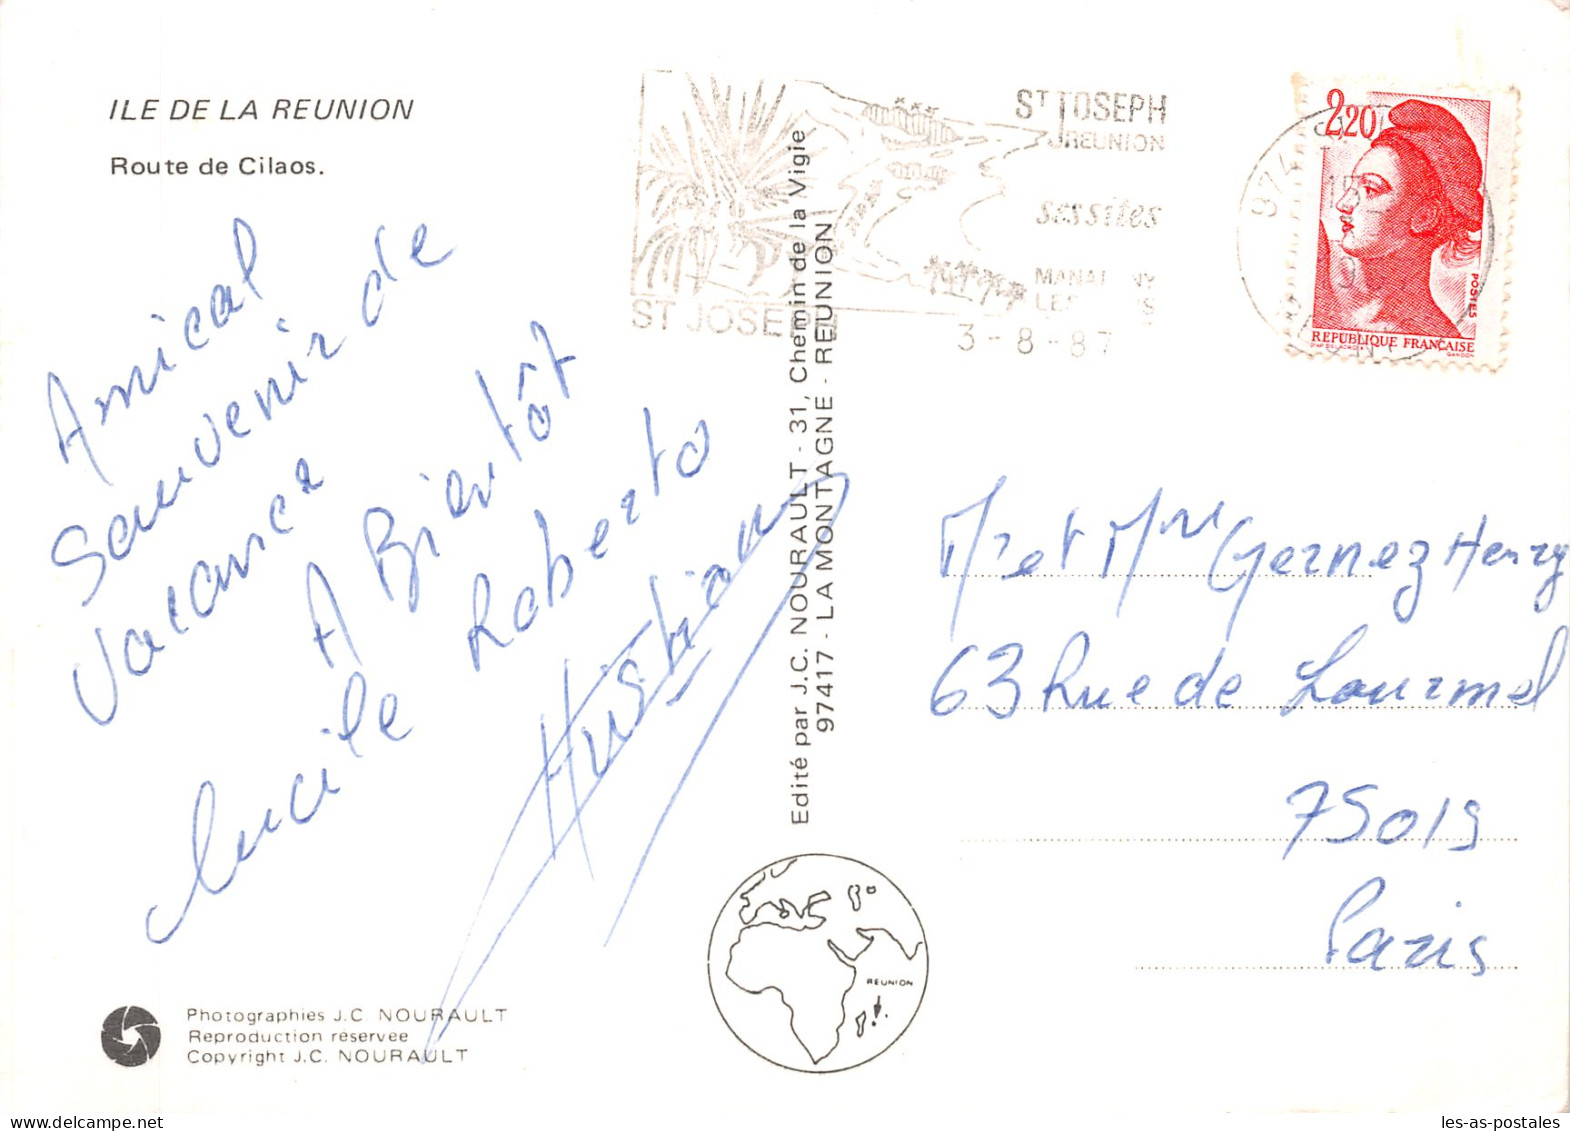 ILE DE LA REUNION
Route de Cilaos.
Amical
Souvenir de
Vacance
A Bientôt
Lucile Roberto
ST JOSEPH
REUNION
ses sites
ST JOSEPH
3-8-87
974
2,20
POSTES
REPUBLIQUE FRANÇAISE
D'AP. DELACROIX
GANDON
Edité par J.C. NOURAULT - 31, Chemin de la Vigie
97417 - LA MONTAGNE - REUNION
Mr et Mme Gernez Henry
63 Rue de Lourmel
75015
Paris
REUNION
Photographies J.C. NOURAULT
Reproduction réservée
Copyright J.C. NOURAULT
delcampe.net
les-as-postales